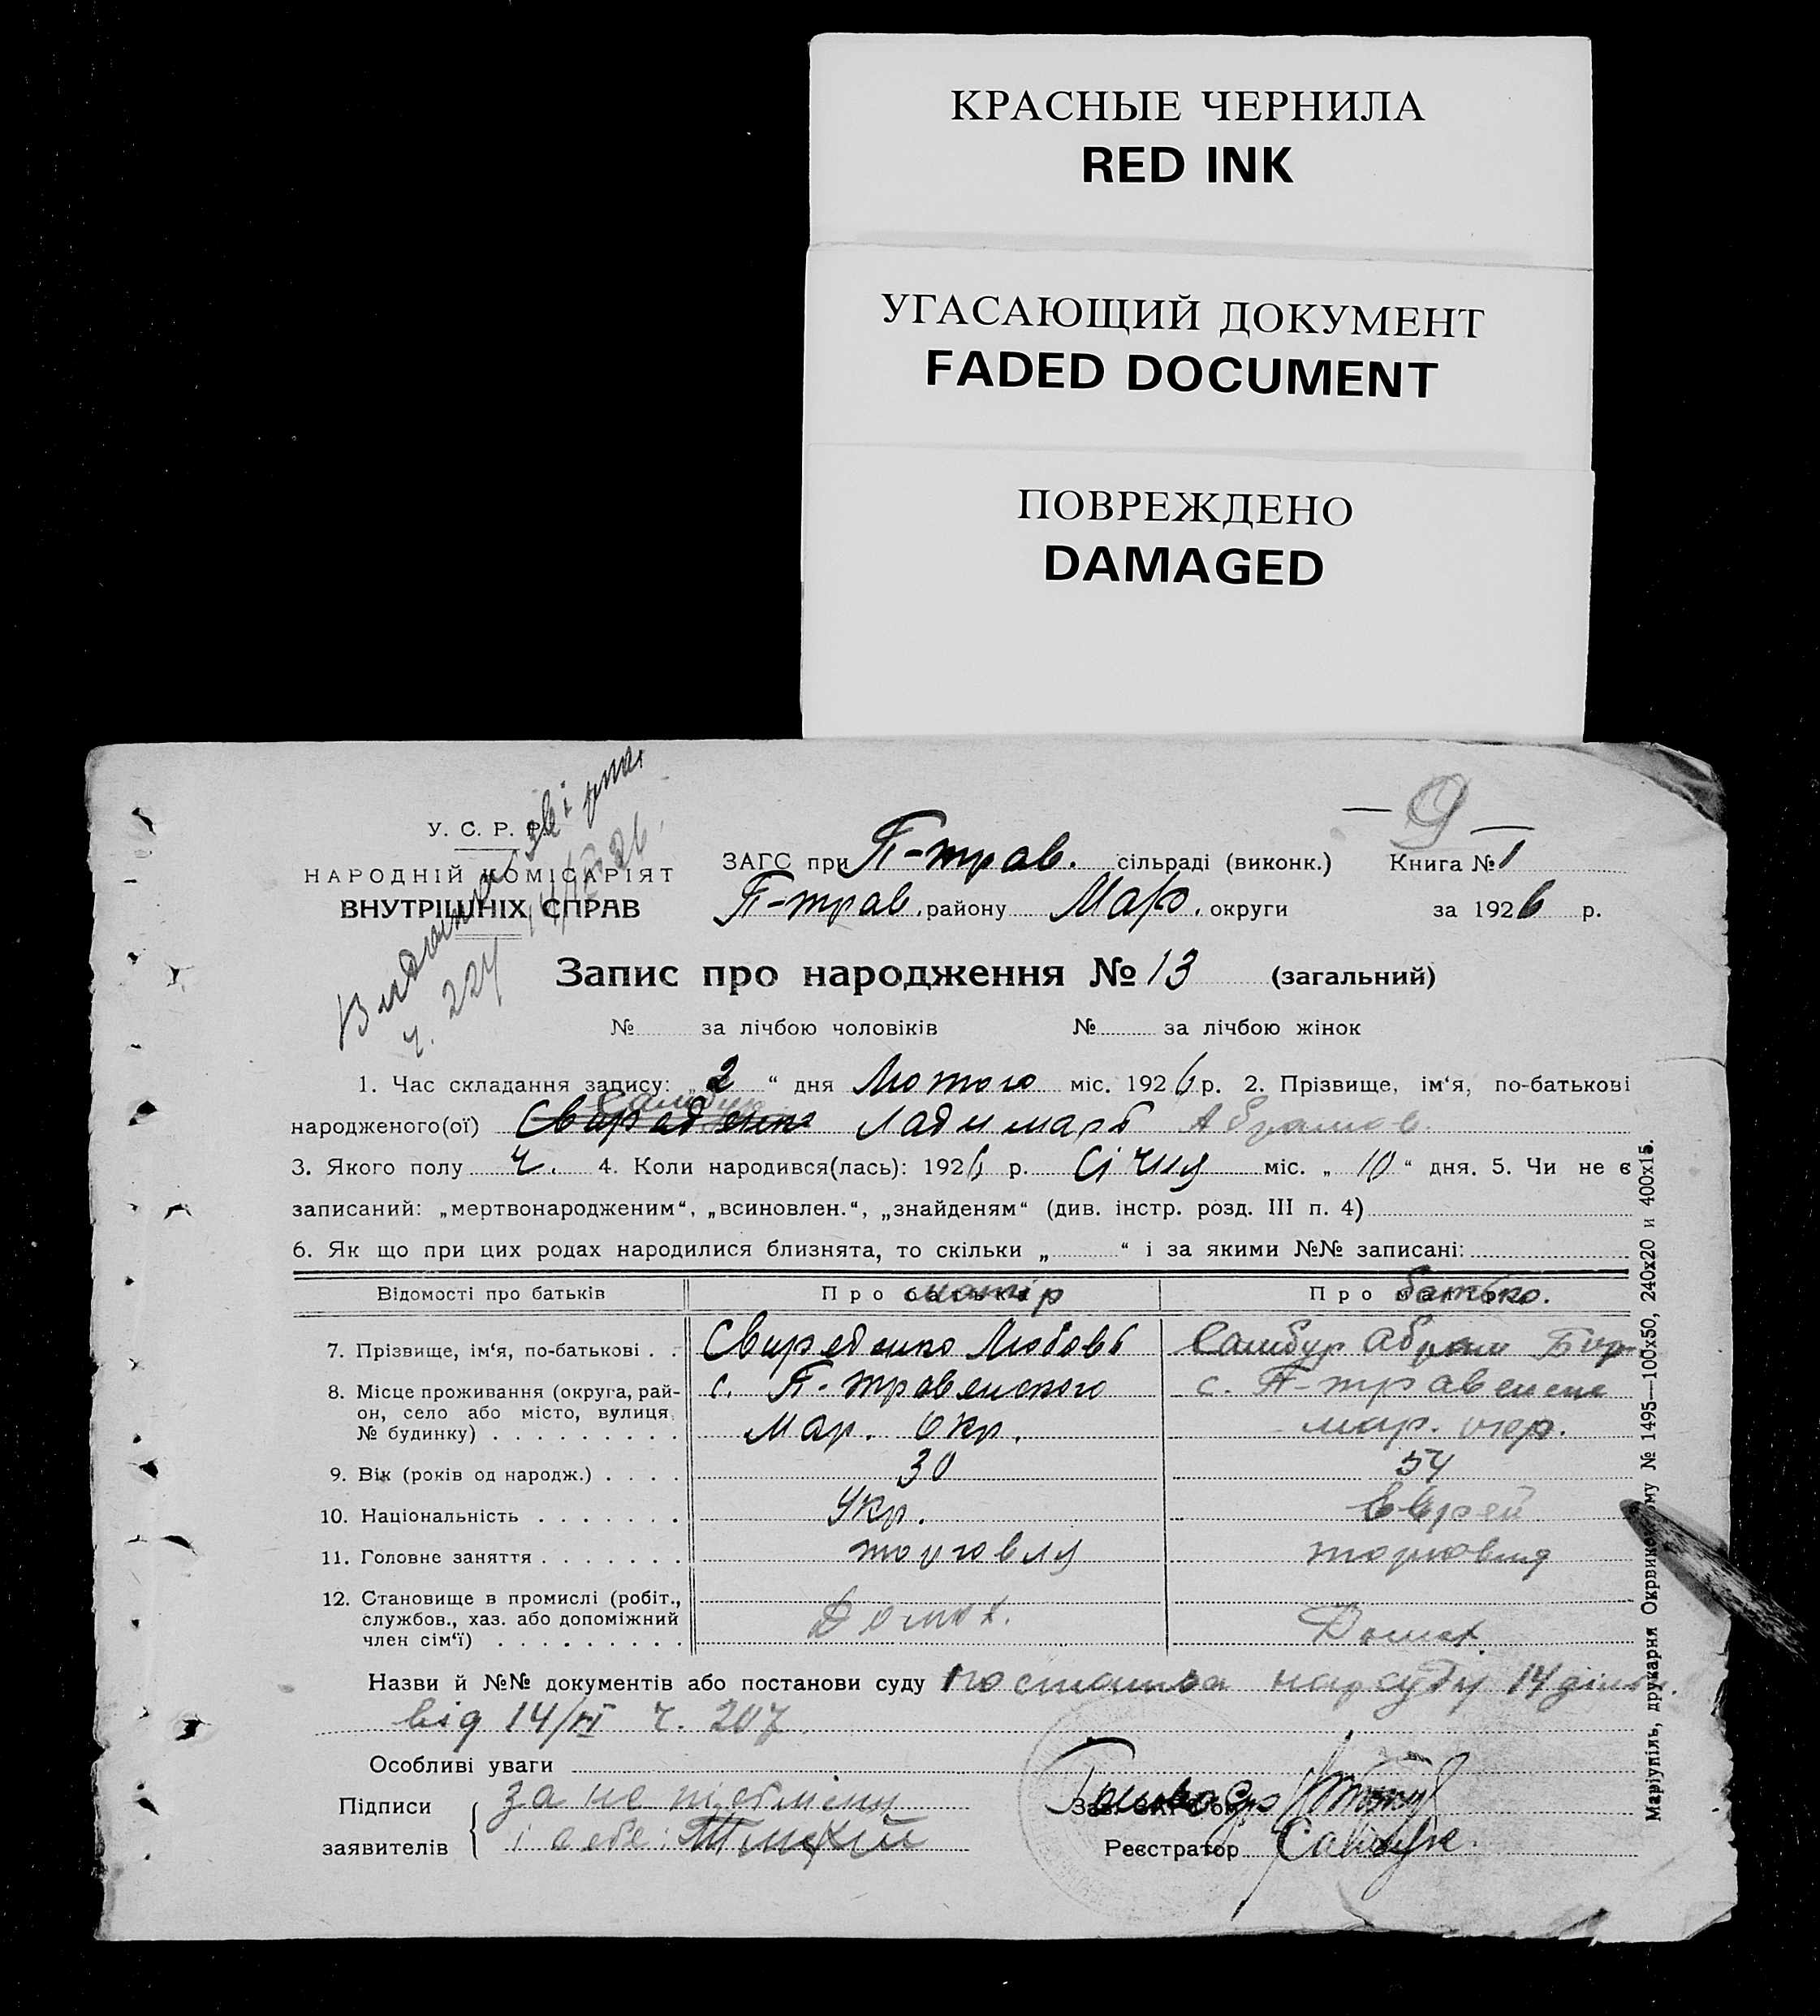 КРАСНЫЕ ЧЕРНИЛА
RED INK
УГАСАЮЩИЙ ДОКУМЕНТ
FADED DOCUMENT
ПОВРЕЖДЕНО
DAMAGED
— 9 —
У. С. Р. Р.
НАРОДНІЙ КОМІСАРІЯТ
ВНУТРІШНІХ СПРАВ
ч. 224
ЗАГС при П-трав. сільраді (виконк.) Книга № 1
П-трав. району Мар. округи за 1926 р.
Запис про народження № 13 (загальний)
№ за лічбою чоловіків № за лічбою жінок
1. Час складання запису: „2“ дня Лютого міс. 1926 р. 2. Прізвище, ім‘я, по-батькові
Самбур
народженого(ої) Свиреденко Ладимарь Абрамов.
3. Якого полу ч. 4. Коли народився(лась): 1926 р. Січня міс. „10“ дня. 5. Чи не є
записаний: „мертвонародженим“, „всиновлен.“, „знайденям“ (див. інстр. розд. III п. 4)
6. Як що при цих родах народилися близнята, то скільки „ “ і за якими №№ записані:
Відомості про батьків Про матір Про батько.
7. Прізвище, ім‘я, по-батькові . . Свиреденко Любовь Самбур Абрам Бор
8. Місце проживання (округа, рай- с. П-травенского с. П-травенске
он, село або місто, вулиця,
№ будинку) . . . . . . . . . Мар. Окр. мар. окр.
9. Вік (років од народж.) . . . . 30 54
10. Національність . . . . . . . Укр. Еврей
11. Головне заняття . . . . . . . торговля торговля
12. Становище в промислі (робіт.,
службов., хаз. або допоміжний Домох. Домох.
член сім‘ї) . . . . . . . . .
Назви й №№ документів або постанови суду постанова нарсуду 14 діль.
від 14/VI ч. 207.
Особливі уваги
Підписи за не
заявителів і себе:
Реєстратор
Маріупіль, друкарня Окрвиконкому № 1495—100х50, 240х20 и 400х15.